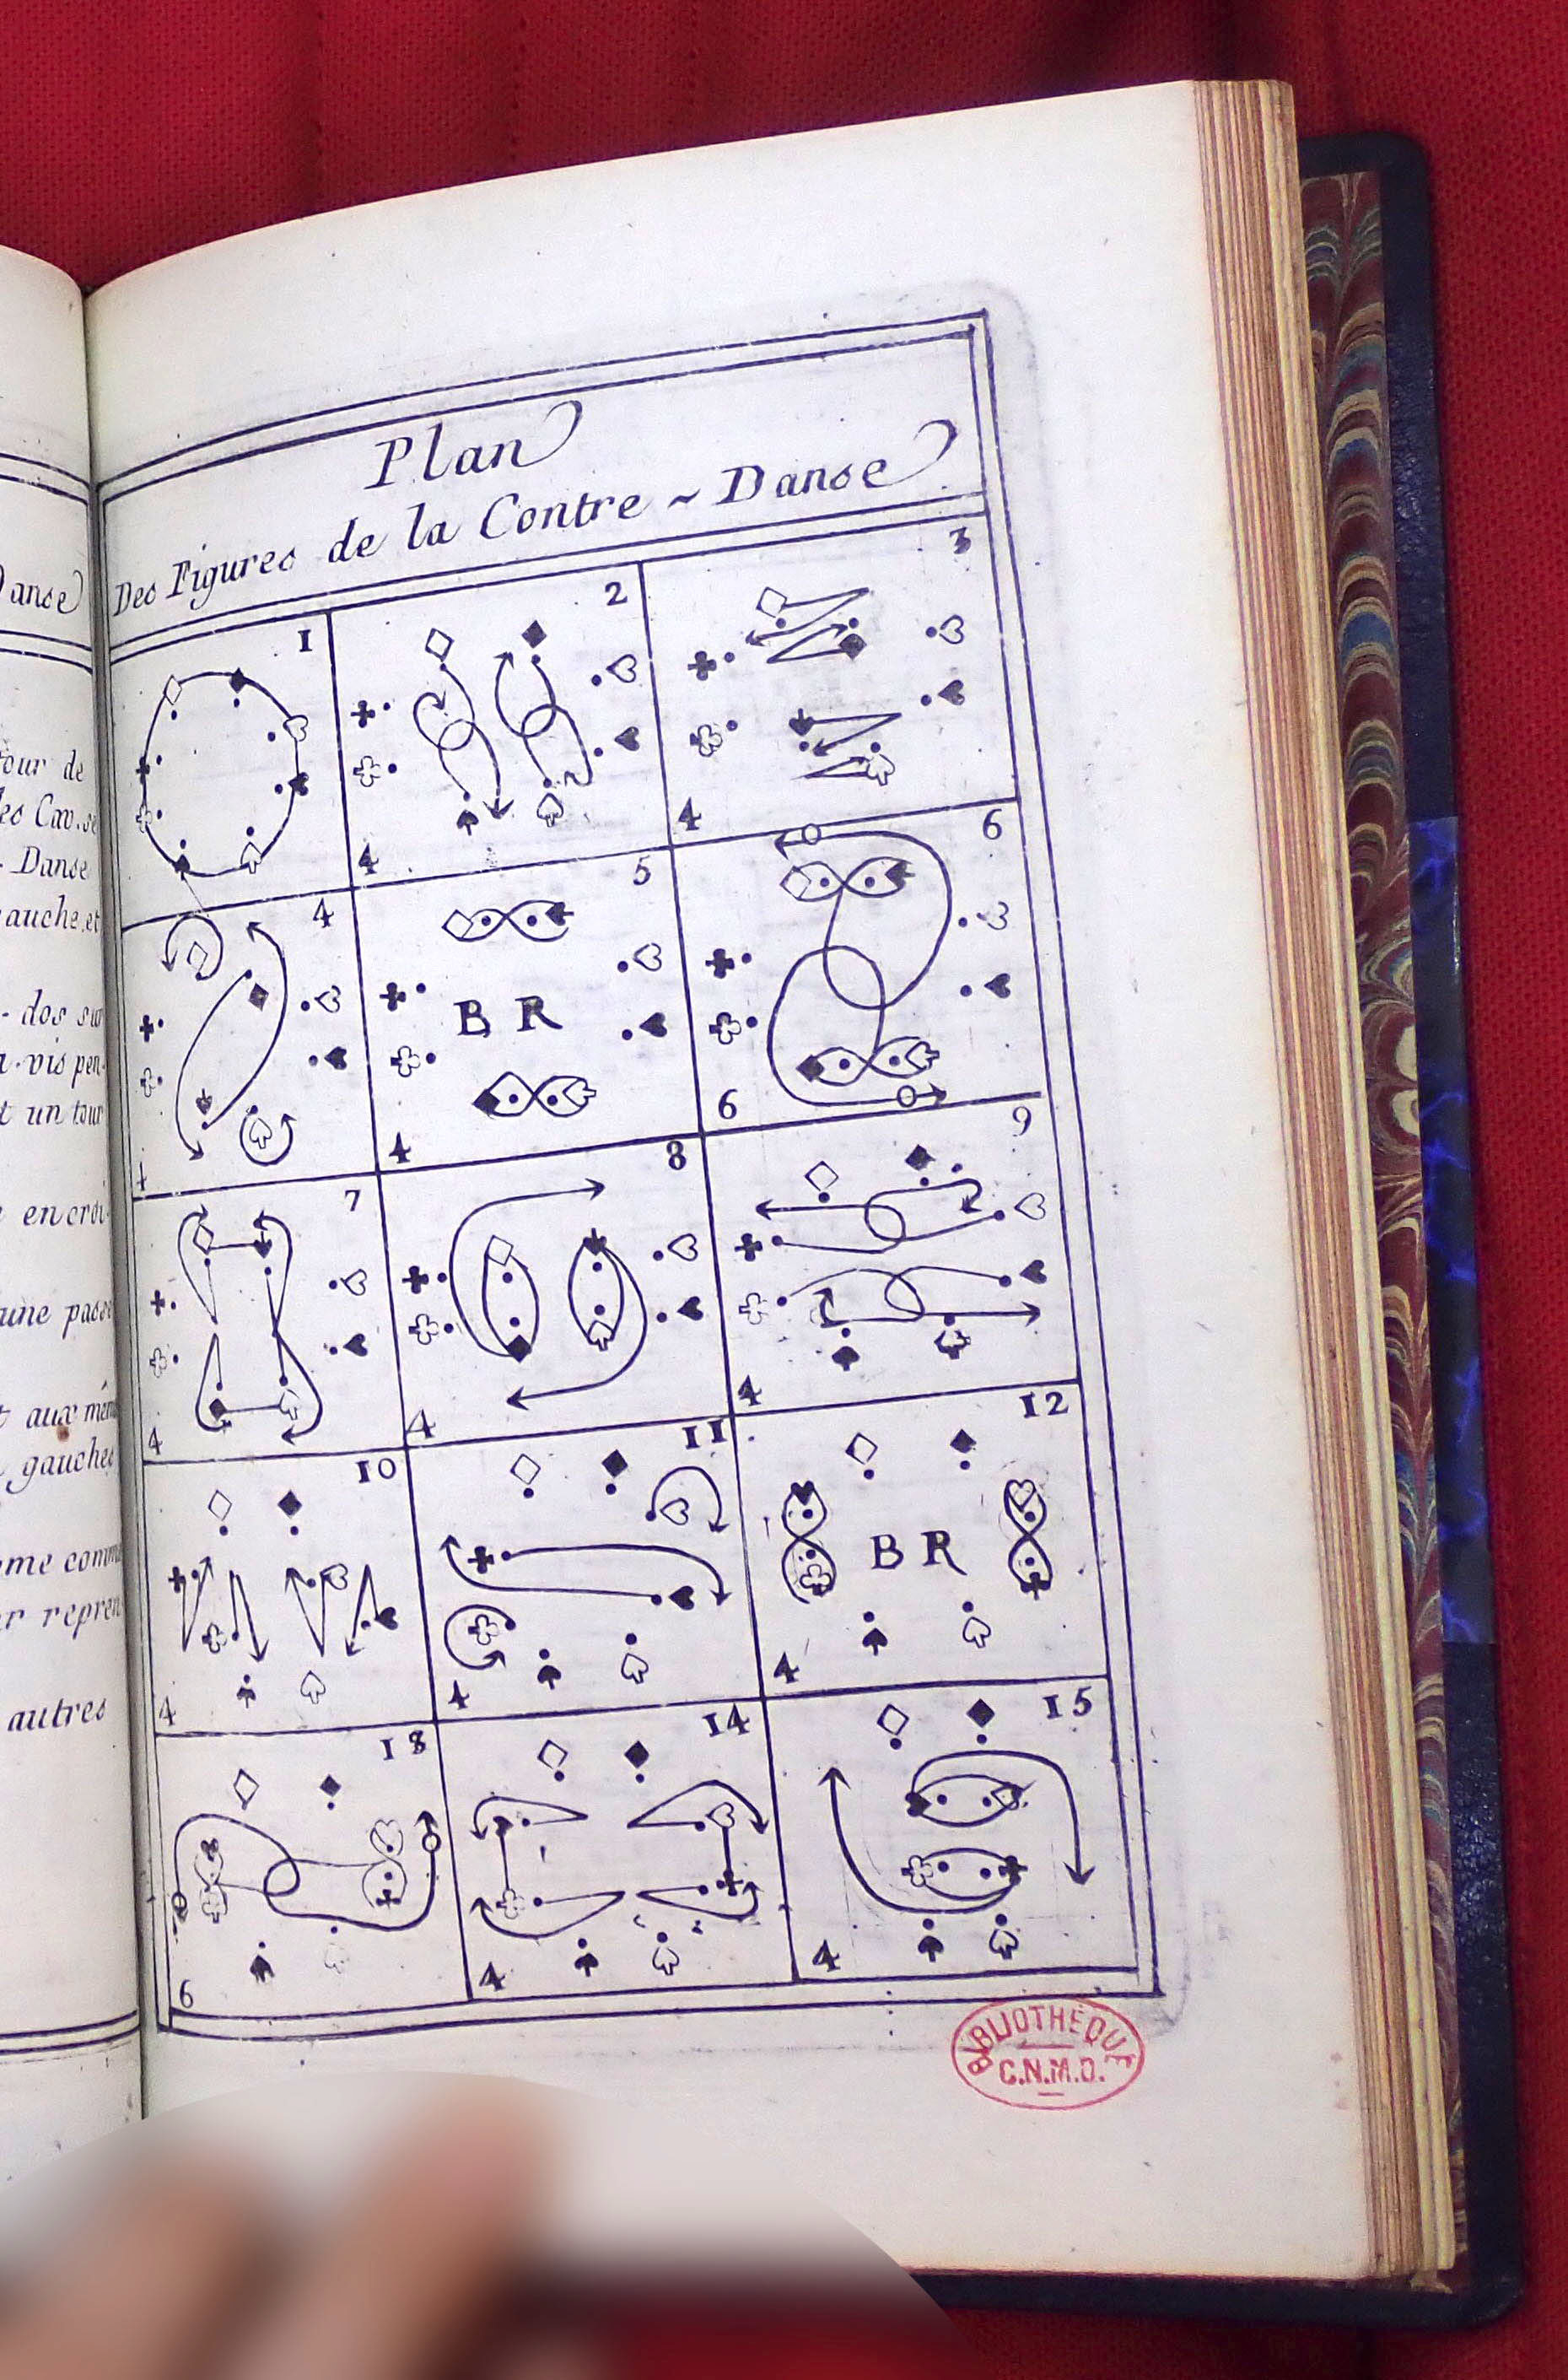 Plan
Des Figures de la Contre ~ Danse
1
2
4
3
4
4
4
5
B R
4
6
6
7
4
8
4
9
4
10
4
11
4
12
B R
4
13
6
14
4
15
4
BIBLIOTHÈQUE
C.N.M.D.
Danse
tour de
les Cav. se
- Danse
gauche, et
- dos sur
à-vis pen-
et un tour
en croi-
une passe
et aux mêm
gauches
me comme
er repren
autres